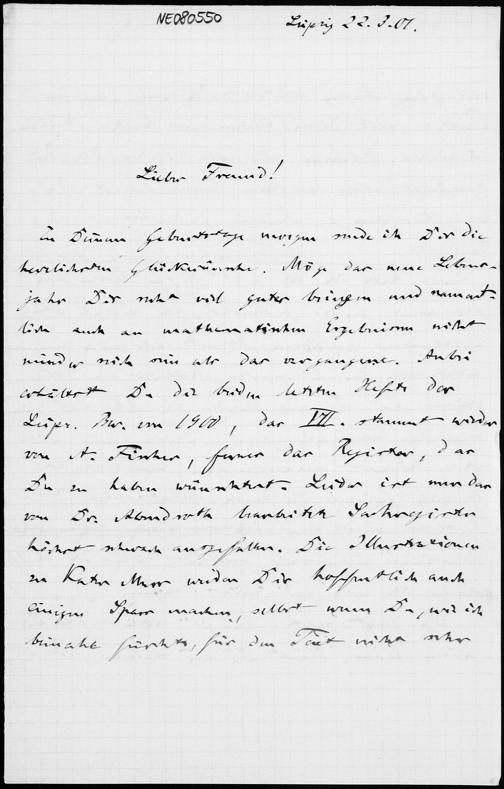 NE080550
Leipzig 22.3.01.
Lieber Freund!
Zu Deinem Geburtstage morgen sende ich Dir die
herzlichsten Glückwünsche. Möge das neue Lebens-
jahr Dir recht viel gutes bringen und nament-
lich auch an mathematischen Ergebnissen nicht
minder reich sein als das vergangene. Anbei
erhältst Du die beiden letzten Hefte der
Leipz. Ber. von 1900, das VII. stammt wieder
von A. Fischer, ferner das Register, das
Du zu haben wünschtest. Leider ist nur das
von Dr. Abendroth bearbeitete Sachregister
höchst schwach ausgefallen. Die Illustrazionen
zu Kater Murr werden Dir hoffentlich auch
einigen Spass machen, selbst wenn Du, wie ich
beinahe fürchte, für den Text nicht sehr